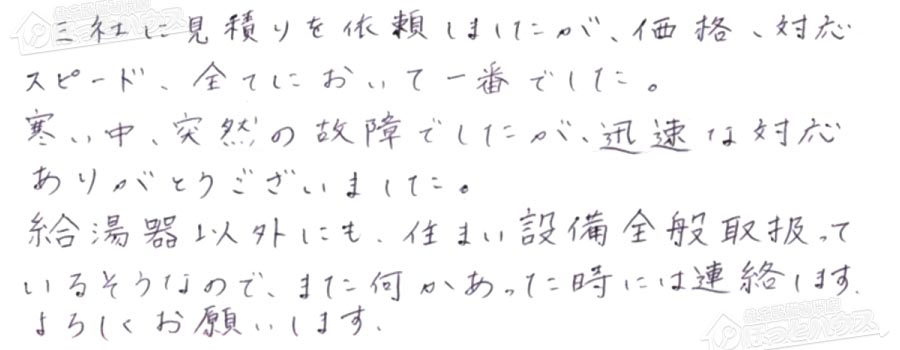 三社に見積りを依頼しましたが、価格、対応
スピード、全てにおいて一番でした。
寒い中、突然の故障でしたが、迅速な対応
ありがとうございました。
給湯器以外にも、住まい設備全般取扱って
いるそうなので、また何かあった時には連絡します.
よろしくお願いします.